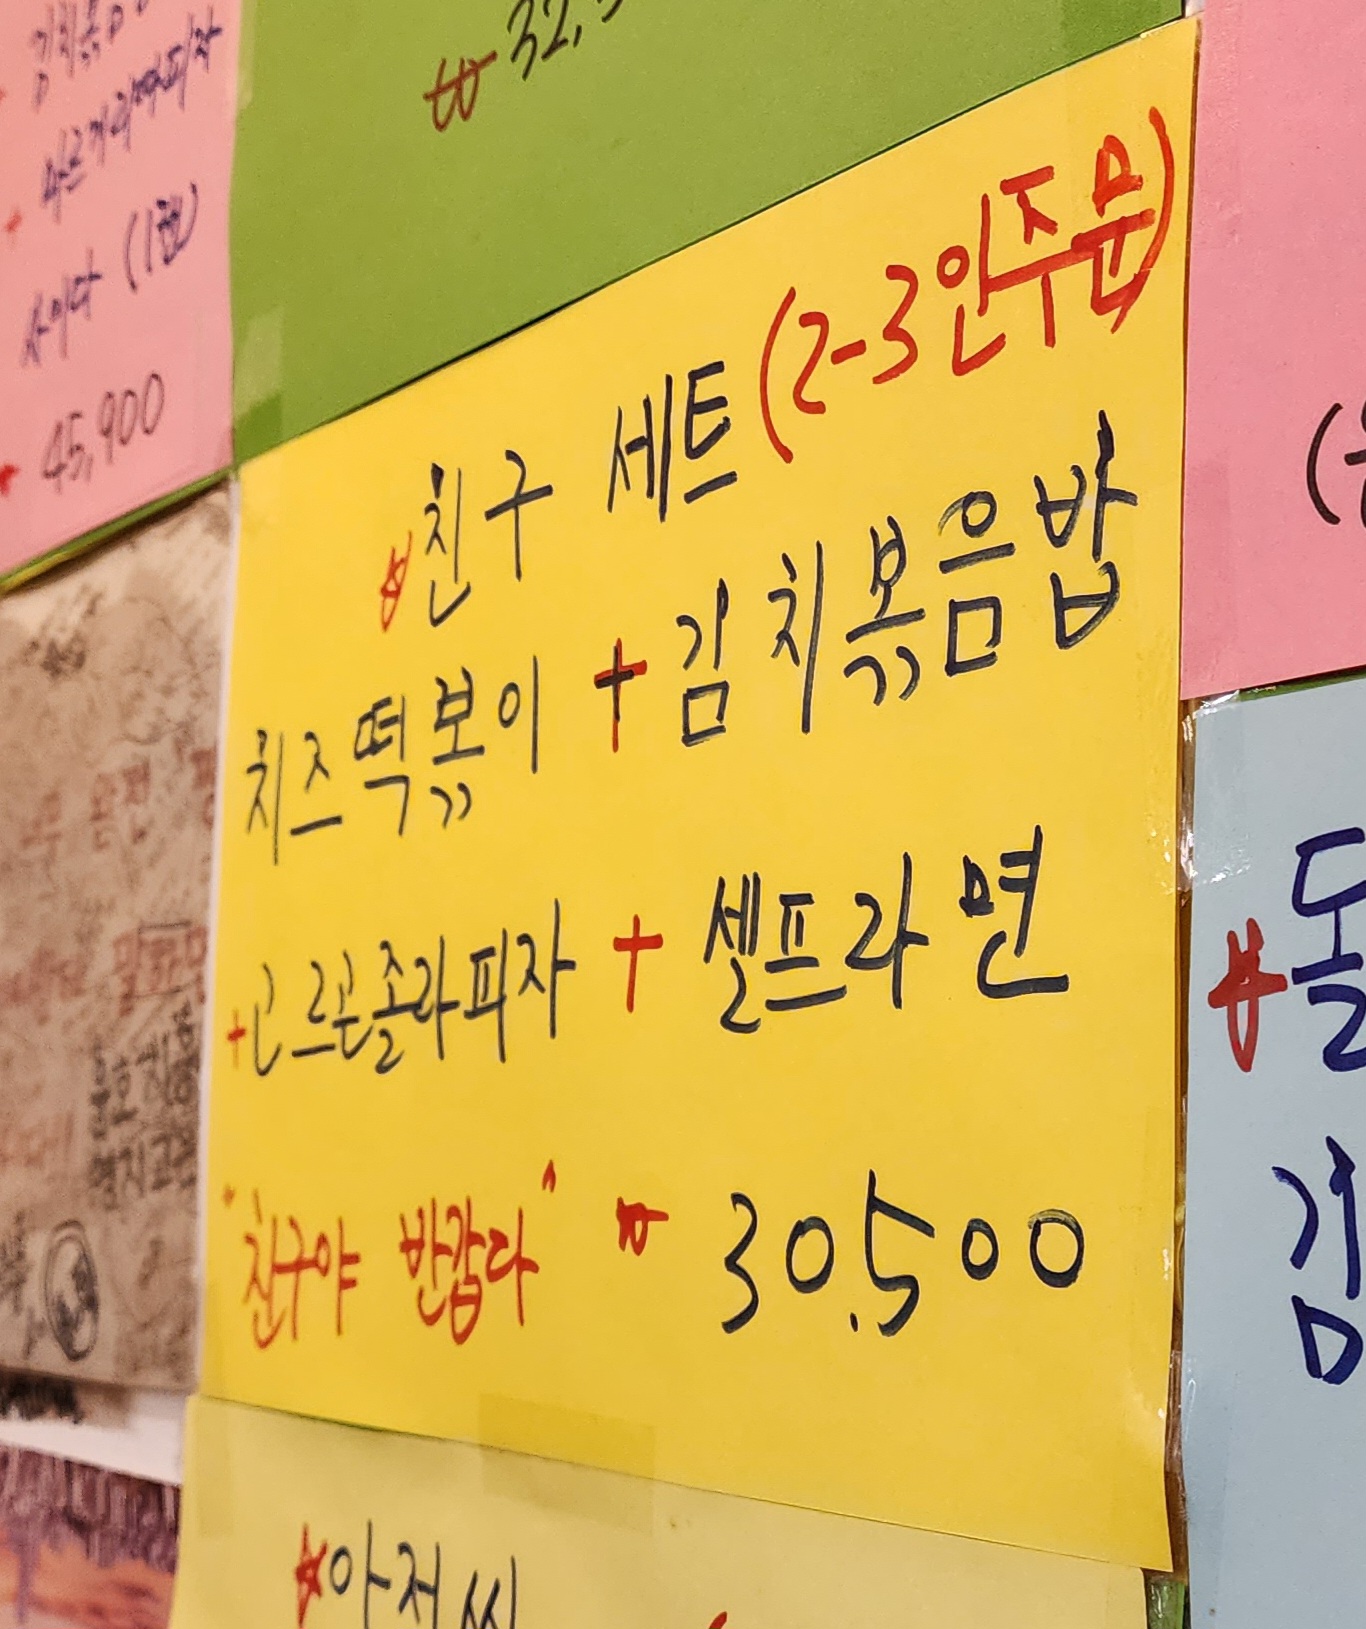 김치볶음
+ 마르게리따피자
사이다 (1캔)
45,900
₩ 32,5
친구 세트 (2-3인주문)
치즈떡볶이 + 김치볶음밥
+ 고르곤졸라피자 + 셀프라면
"친구야 반갑다" 30,500
아저씨
돌
김